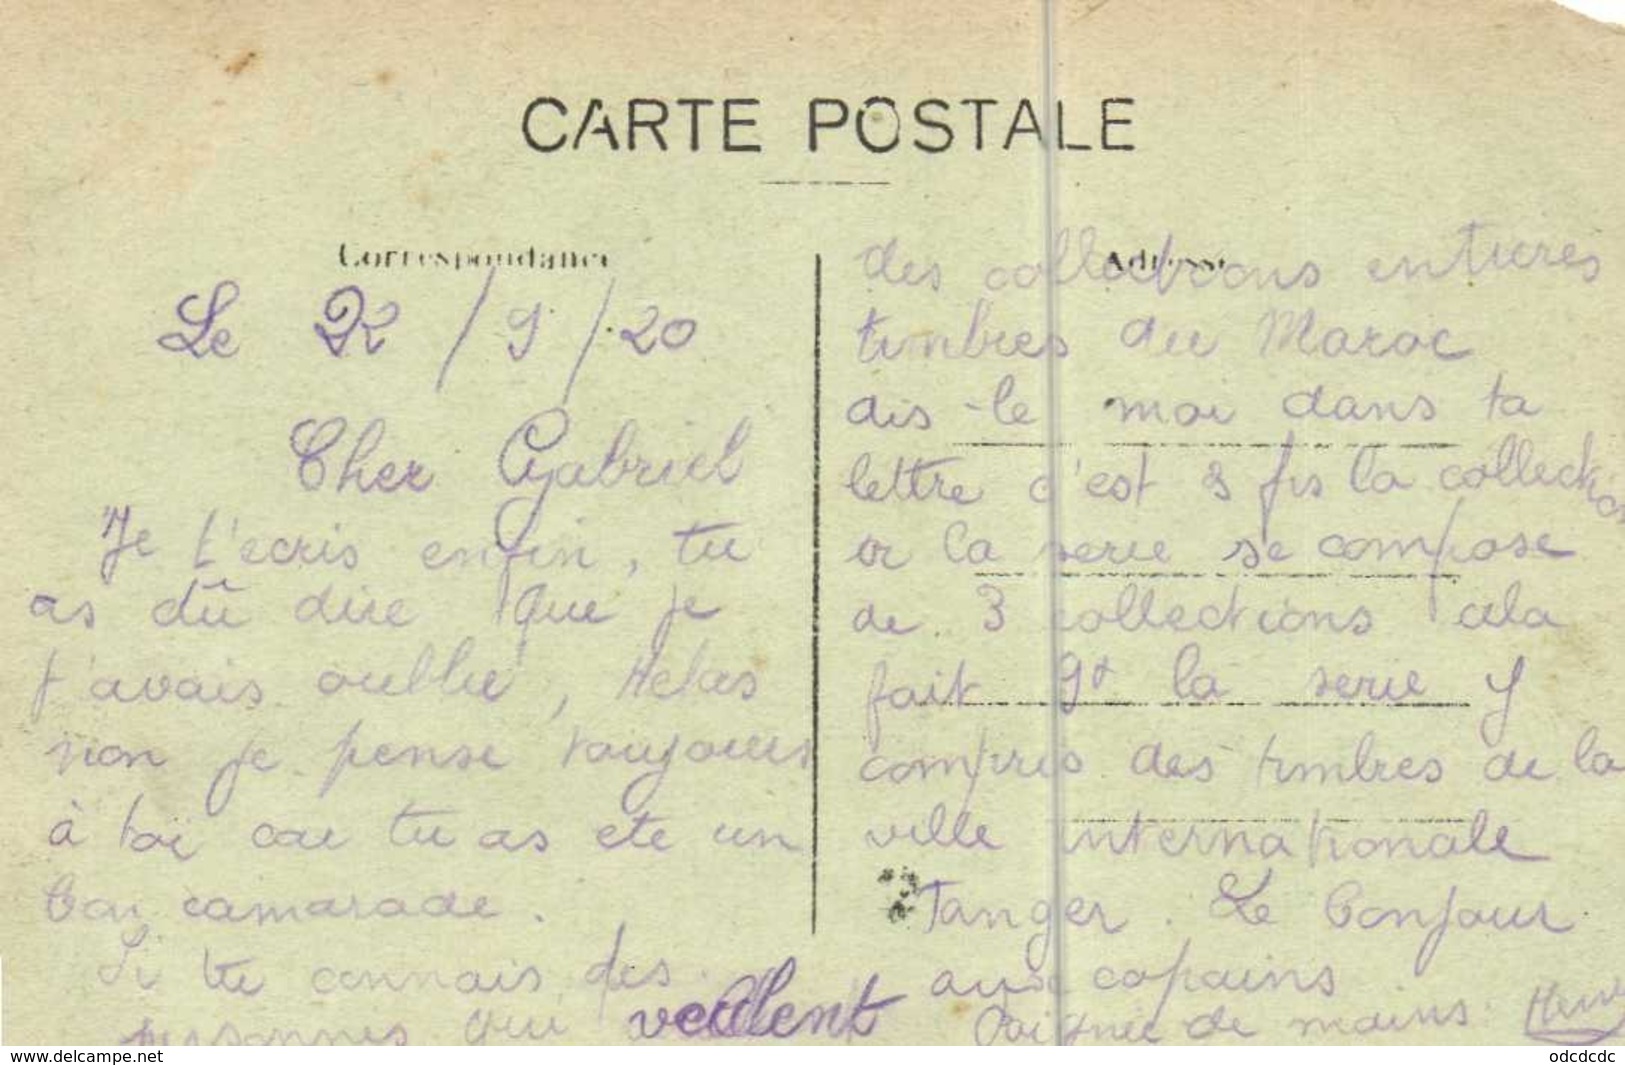 CARTE POSTALE
Correspondance
Adresse
Le 22/9/20
Cher Gabriel
Je t'ecris enfin, tu
as dû dire que je
t'avais oublié, Helas
non je pense toujours
à toi car tu as ete un
bon camarade.
Si tu connais des
personnes qui veulent
des collections entieres
timbres du Maroc
dis-le moi dans ta
lettre c'est 3 frs la collection
or la serie se compose
de 3 collections cela
fait 9f la serie y
compris des timbres de la
ville internationale
Tanger. Le Bonjour
aux copains
Poignée de mains.
www.delcampe.net
odcdcdc